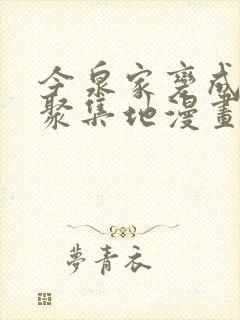 今泉家变成
聚集地漫畫
夢青衣